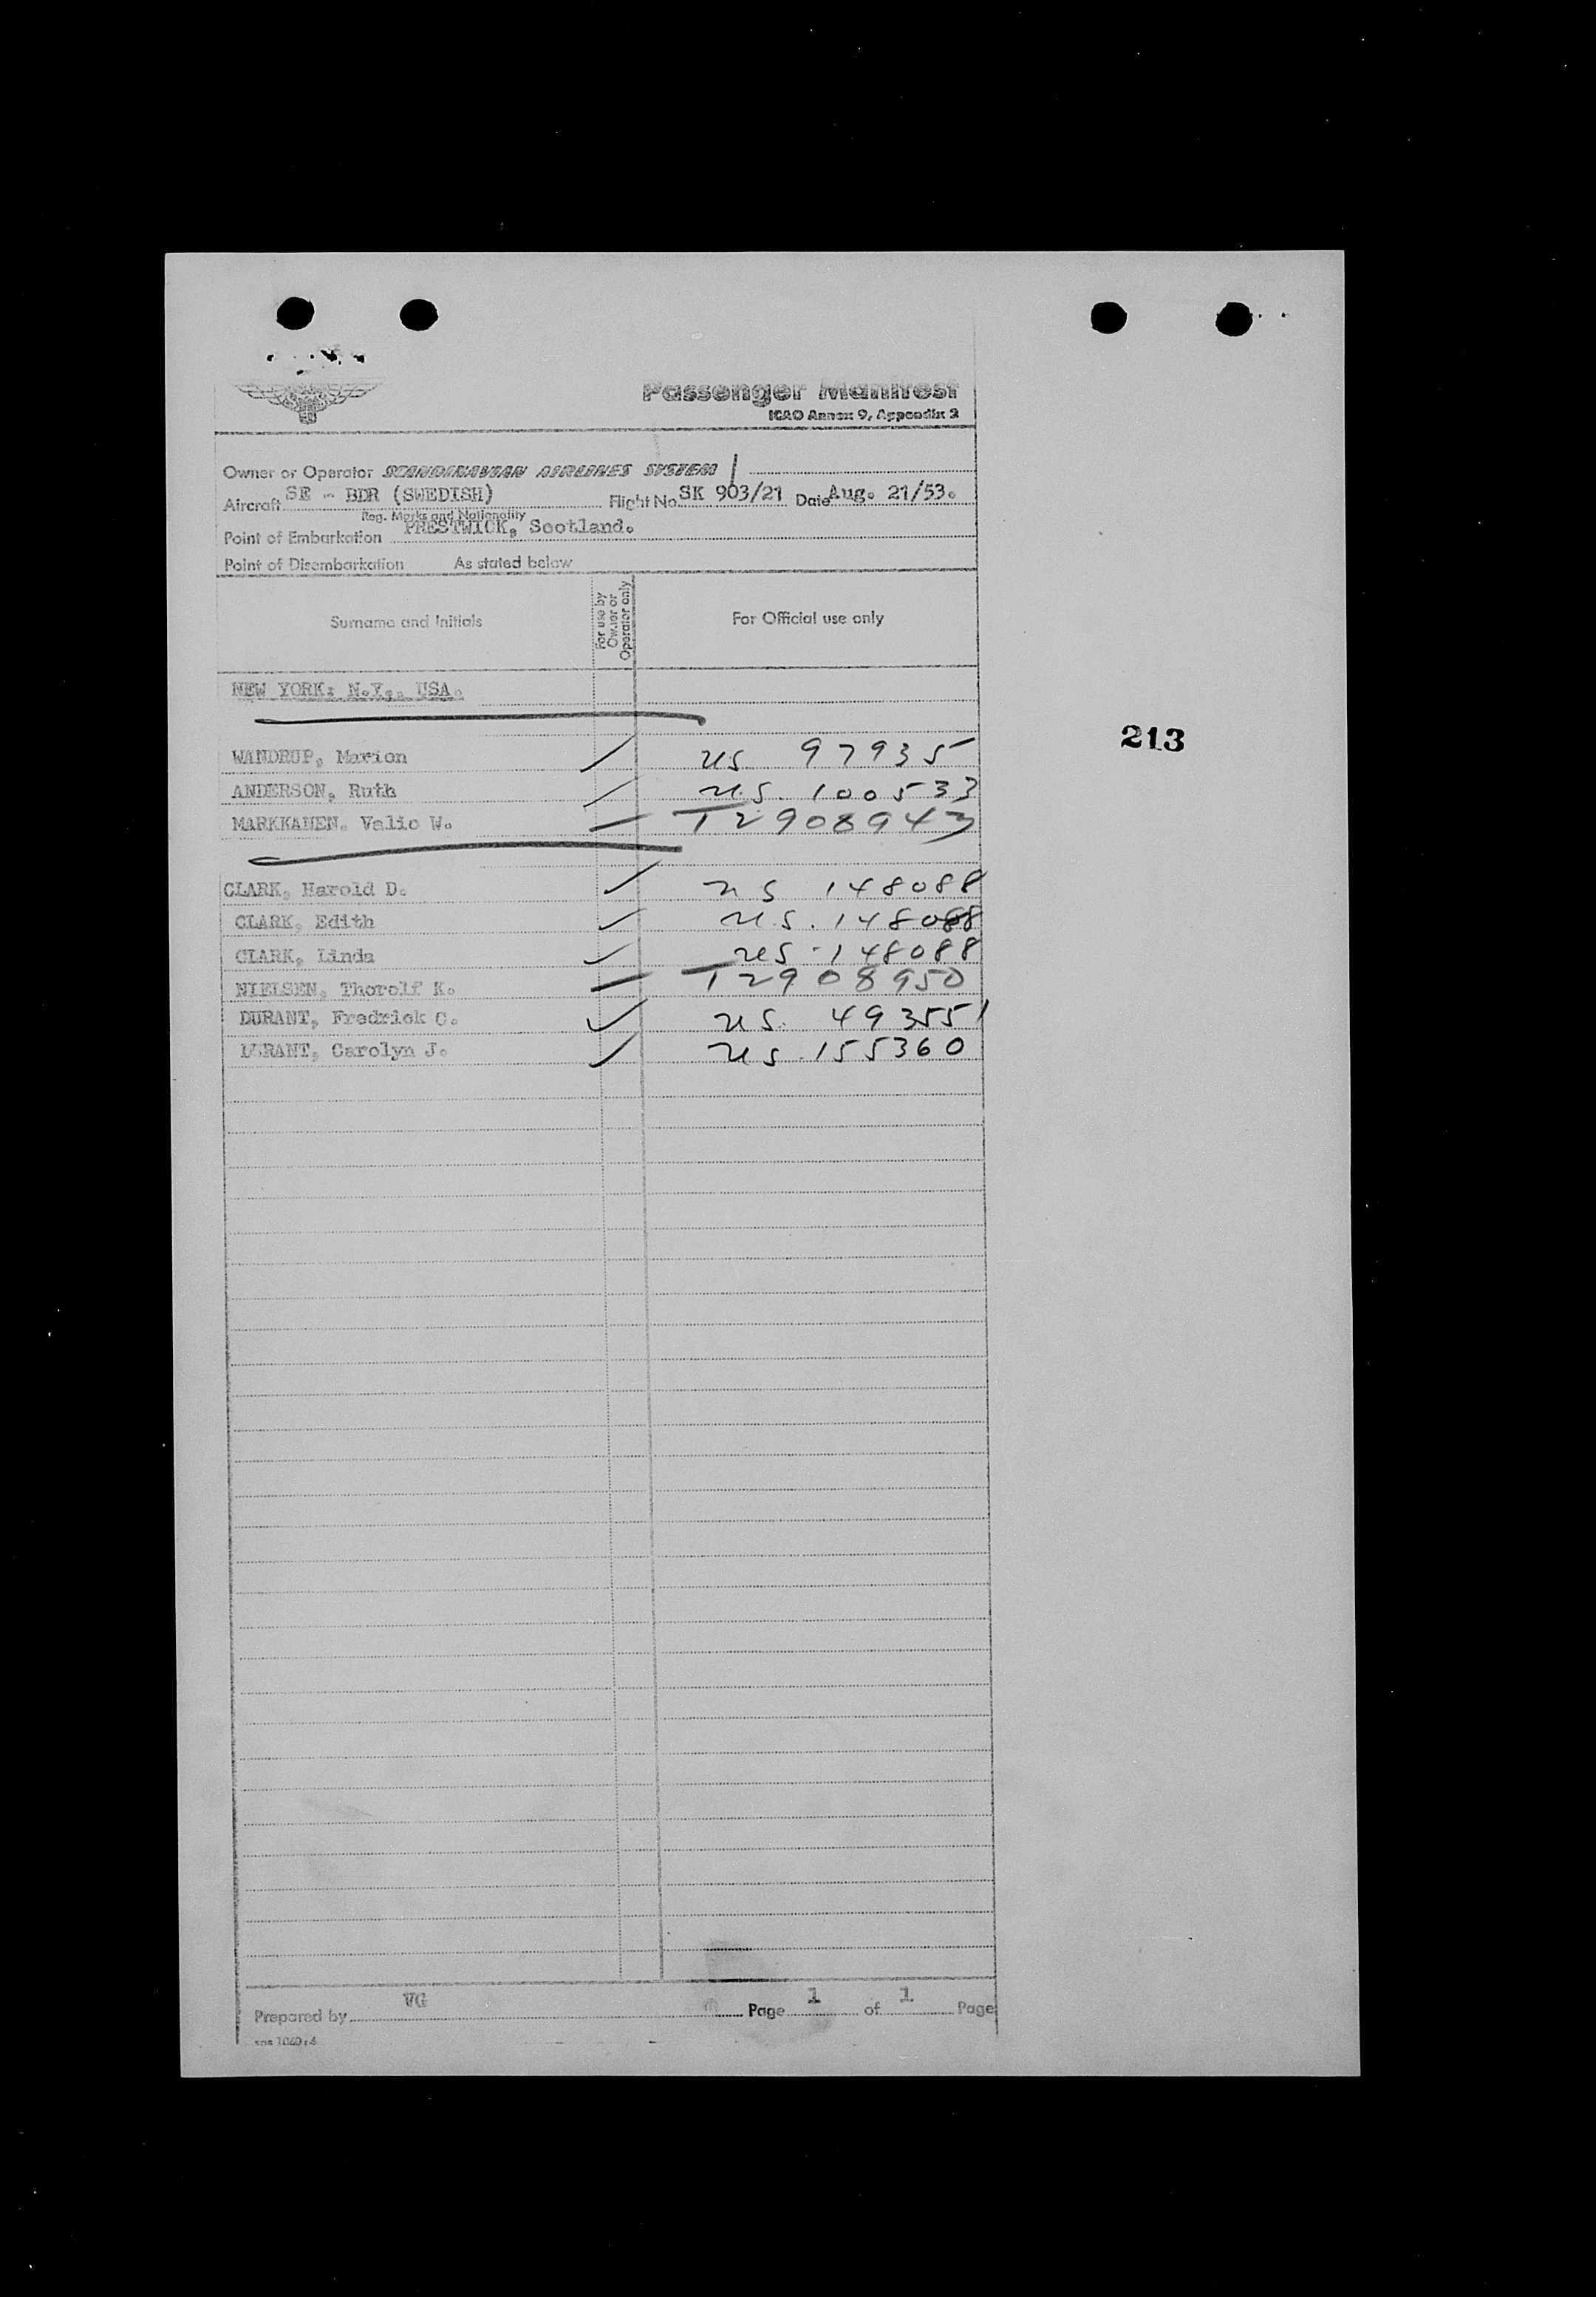 Passenger Manifest
ICAO Annex 9, Appendix 2
Owner or Operator SCANDINAVIAN AIRLINES SYSTEM
Aircraft SE - BDR (SWEDISH) Flight No SK 903/21 Date Aug. 21/53.
Reg. Marks and Nationality
Point of Embarkation PRESTWICK, Scotland.
Point of Disembarkation As stated below
Surname and Initials
For use by
Owner or
Operator only
For Official use only
NEW YORK: N.Y., USA.
213
WANDRUP, Marion us 97935
ANDERSON, Ruth us. 100533
MARKKANEN, Valio W. T2908943
CLARK, Harold D. us 148088
CLARK, Edith us. 148088
CLARK, Linda us - 148088
NIELSEN, Thorolf K. T2908950
DURANT, Fredrick C. us. 493551
DURANT, Carolyn J. us. 155360
Prepared by VG Page 1 of 1 Page